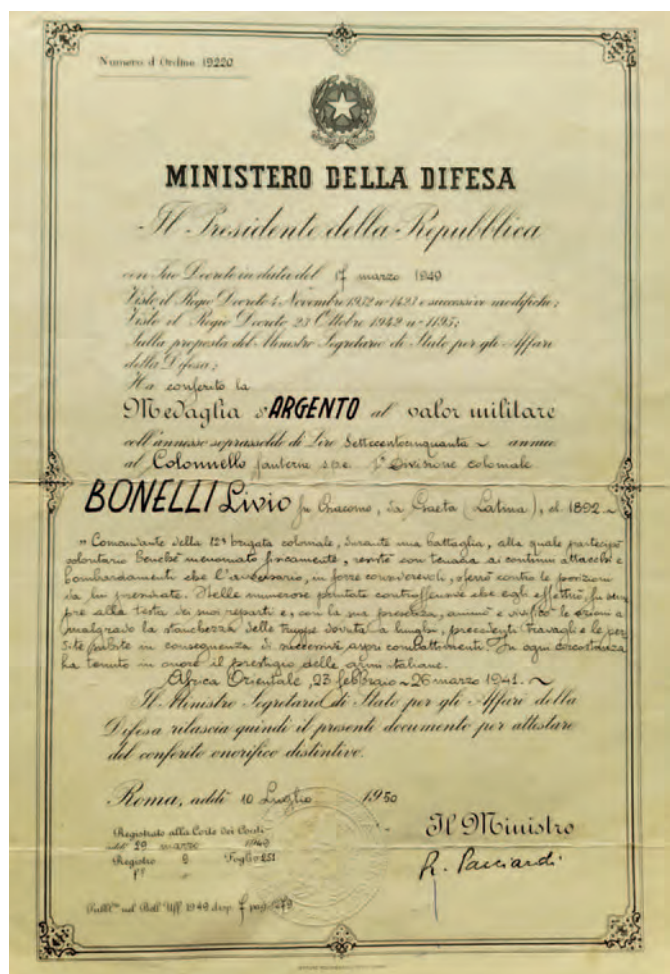 Numero d'Ordine 19220
MINISTERO DELLA DIFESA
Il Presidente della Repubblica
con Suo Decreto in data del 17 marzo 1949
Visto il Regio Decreto 4 Novembre 1932 nº 1423 e successive modifiche;
Visto il Regio Decreto 23 Ottobre 1942 nº 1195;
Sulla proposta del Ministro Segretario di Stato per gli Affari
della Difesa;
Ha conferito la
Medaglia d'ARGENTO al valor militare
coll'annesso soprassoldo di Lire Settecentocinquanta ~ annue
al Colonnello fanteria s.p.e. 1ª Divisione coloniale
BONELLI Livio fu Giacomo, da Gaeta (Latina), cl. 1892 ~
" Comandante della 12ª brigata coloniale, durante una battaglia, alla quale partecipò
volontario benché menomato fisicamente, resisté con tenacia ai continui attacchi e
bombardamenti che l'avversario, in forze considerevoli, sferrò contro le posizioni
da lui presidiate. Nelle numerose puntate controffensive che egli effettuò, fu sem
pre alla testa dei suoi reparti e, con la sua presenza, animò e vivificò le azioni a
malgrado la stanchezza delle truppe dovuta a lunghi, precedenti travagli e le per
dite subite in conseguenza di successivi aspri combattimenti. In ogni circostanza
ha tenuto in onore il prestigio delle armi italiane.
Africa Orientale, 23 febbraio ~ 26 marzo 1941. ~
Il Ministro Segretario di Stato per gli Affari della
Difesa rilascia quindi il presente documento per attestare
del conferito onorifico distintivo.
Roma, addì 10 Luglio 1950
Registrato alla Corte dei Conti
addì 29 marzo 1949
Registro 8 Foglio 251
Il Ministro
R. Pacciardi
Pubbl.to nel Boll. Uff. 1949 disp. 7 pag. 1279